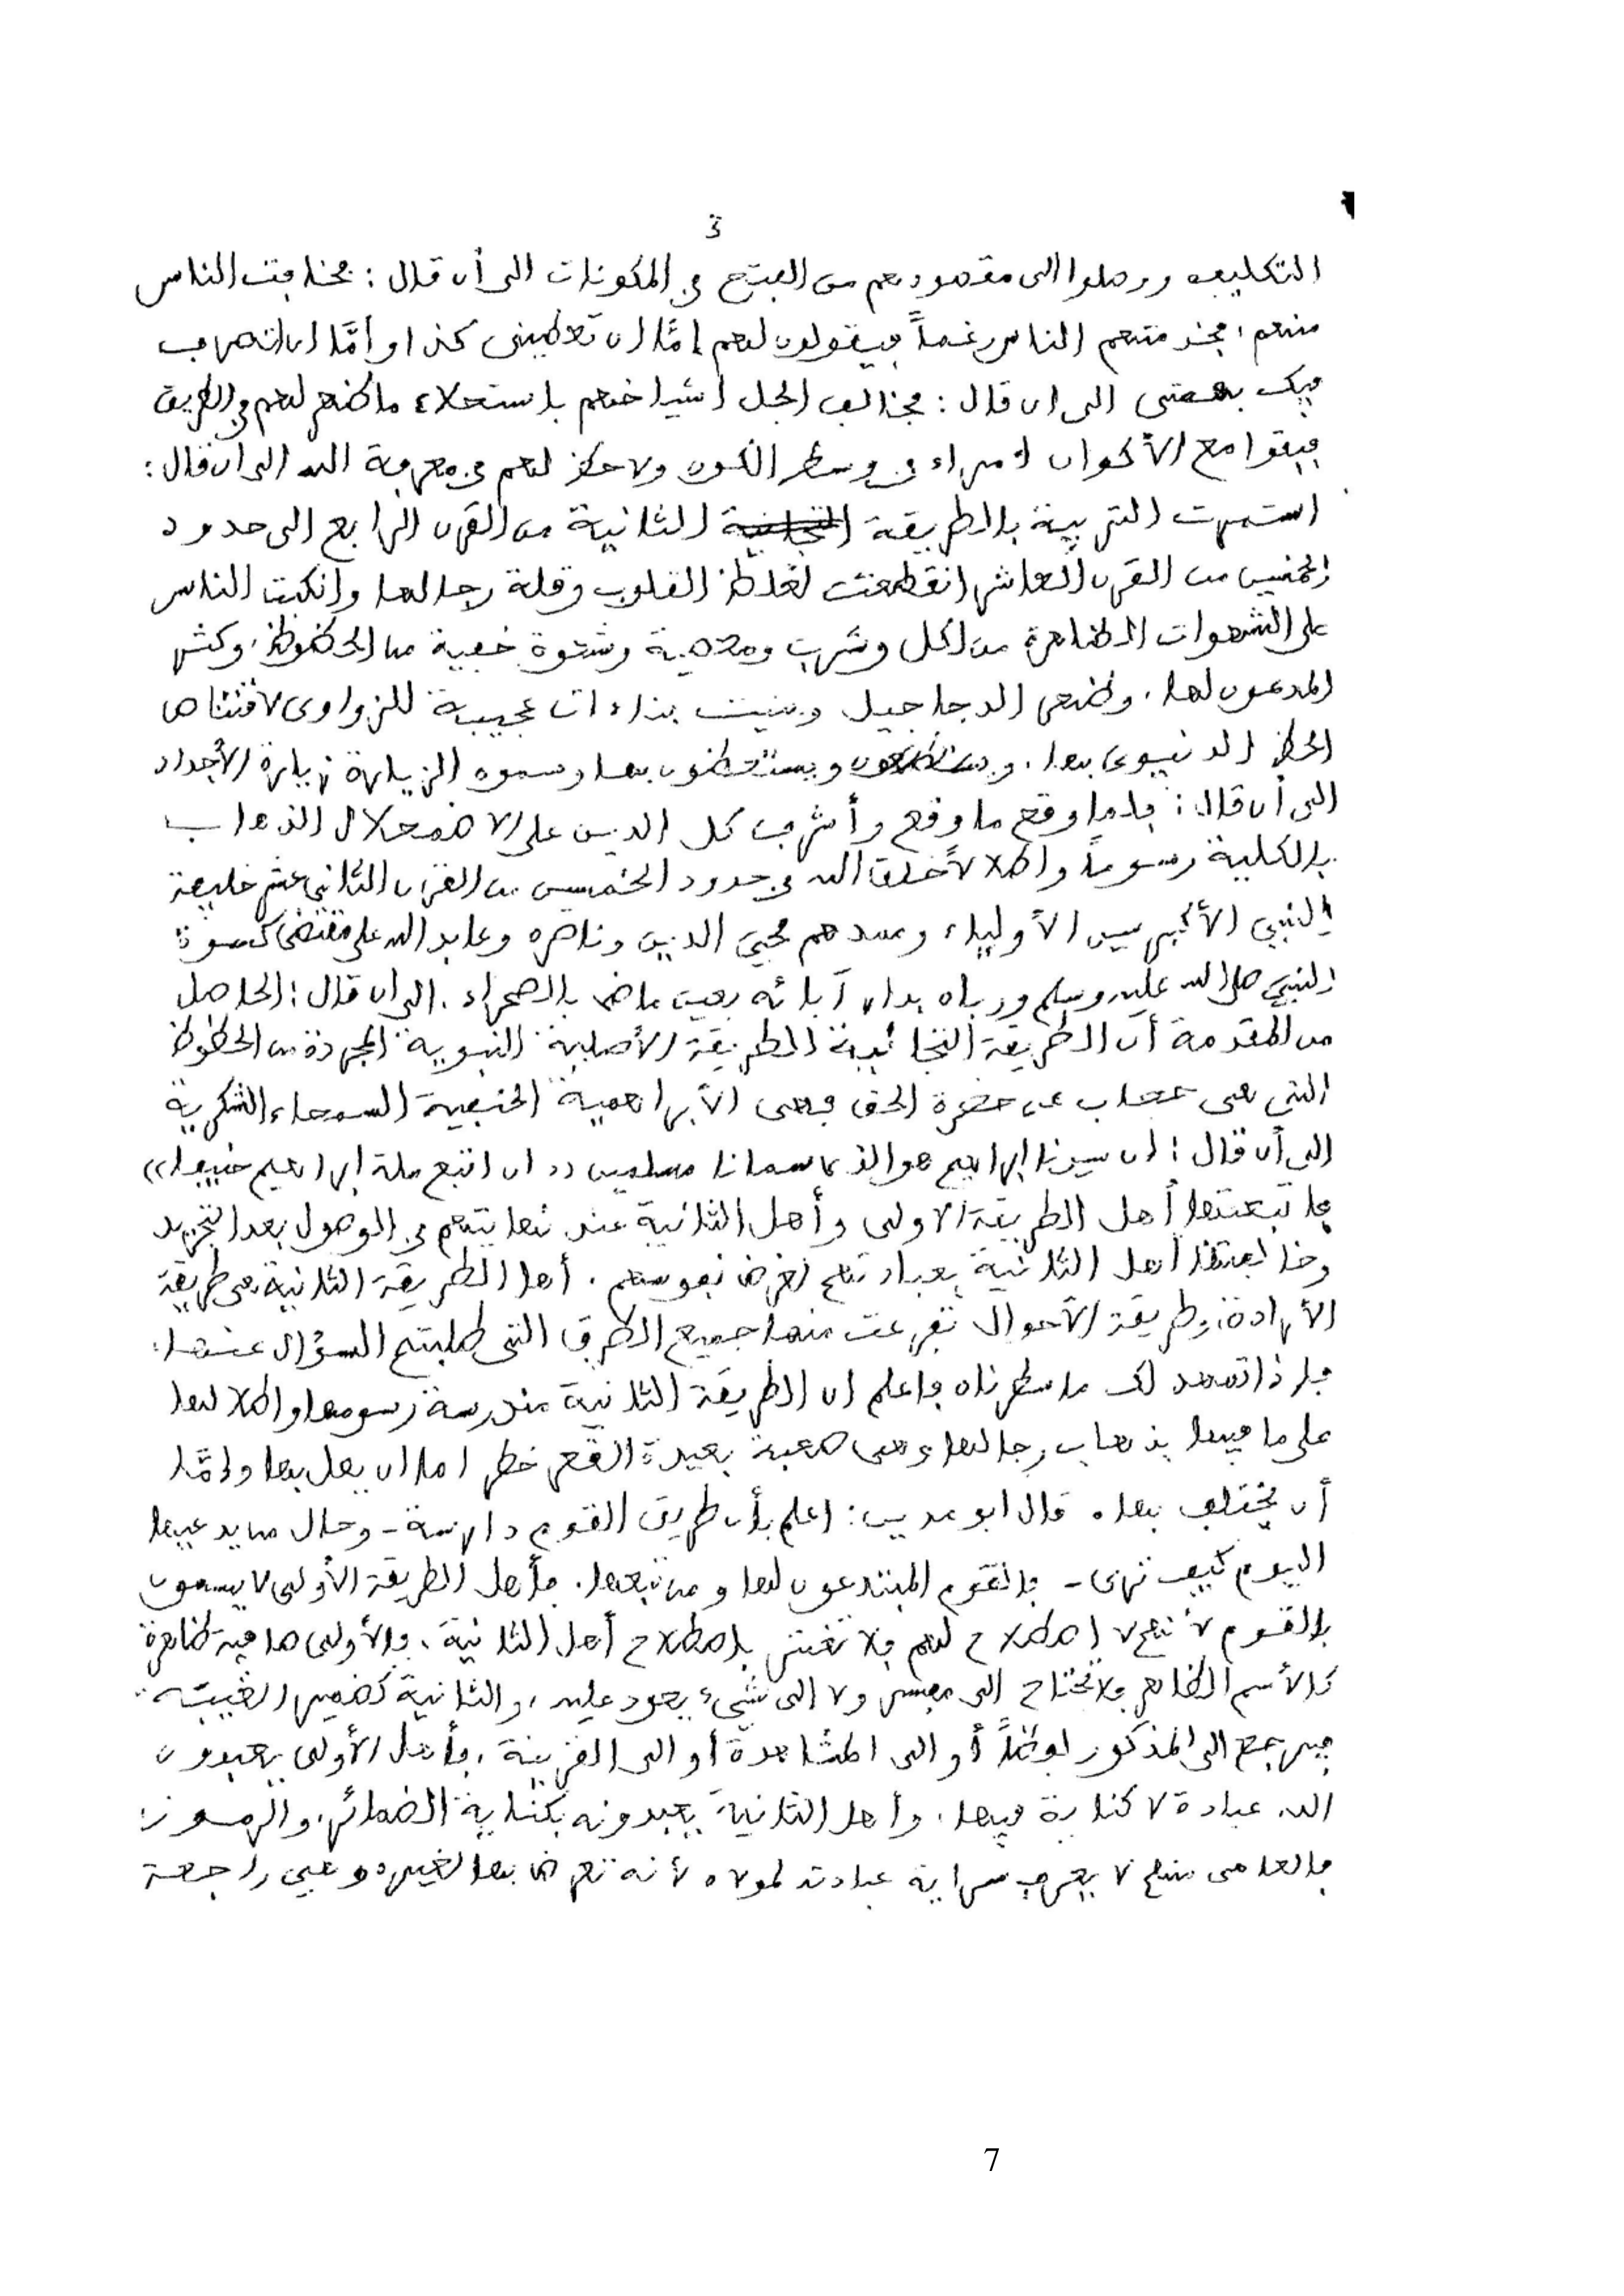 3
التكليف ووصلوا الى مقصودهم من الفتح في المكونات الى أن قال: فخافت الناس
منهم، فخدمتهم الناس رغماً فيقولون لهم إمَّا ان تعطيني كذا او إمَّا ان اتصرف
فيك بهمتي الى ان قال: فخالف الجل أشياخهم باستحلاء ما ظهر لهم في الطريق
فبقوا مع الأكوان أمراء في وسط الكون ولا حظ لهم في معرفة الله الى ان قال:
استمرت التربية بالطريقة الثانية من القرن الرابع الى حدود
الخمسين من القرن العاشر انقطعت لغلظ القلوب وقلة رجالها وانكبت الناس
على الشهوات الظاهرة من اكل وشرب وشهوة خفية من الحظوظ، وكثر
المدعون لها، وظهر الدجاجيل وبنيت بناءات عجيبة للزواوى لاقتناص
الحظ الدنيوى بها، ويستحظون بها وسموه الزيارة زيارة الأجداد
الى أن قال: فلما وقع ما وقع وأشرف كل الدين على الاضمحلال الذهاب
بالكلية رسوماً واطلالاً خلق الله في حدود الخمسين من القرن الثاني عشر خليفة
النبي الأكبر سيد الأولياء وممدهم محيي الدين وناصره وعابد الله على مقتضى كسوة
النبي صلى الله عليه وسلم ورباه بدار آبائه بعين ماضى بالصحراء، الى ان قال: الحاصل
من المقدمة أن الطريقة التجانية الطريقة الأصلية النبوية المجردة من الحظوظ
التي هى حجاب عن حضرة الحق فهى الأبراهمية الحنيفية السمحاء الشكرية
الى أن قال: ان سيدنا ابراهيم هو الذى سمانا مسلمين «ان اتبع ملة ابراهيم حنيفا»
فاتبعتها أهل الطريقة الاولى وأهل الثانية عند نهايتهم في الوصول بعد التجريد
وخالفتها اهل الثانية بعبادتهم لغرض نفوسهم. أما الطريقة الثانية هى طريقة
الأرادة، وطريقة الأحوال تفرعت منها جميع الطرق التى طلبتم السؤال عنها،
فإذا تمهد لك ما سطرناه فاعلم ان الطريقة الثانية مندرسة رسومها واطلالها
على ما فيها بذهاب رجالها، وهى صعبة بعيدة القعر خطر اما ان يعل بها وإمَّا
أن يختلف بها. قال ابو مدين: اعلم بأن طريق القوم دارسة - وحال من يدعيها
اليوم كيف ترى - فالقوم المبتدعون لها ومن تبعها. فأهل الطريقة الأولى لا يسمون
بالقوم لأنهم لا إصطلاح لهم فلا تغتر باصطلاح أهل الثانية، والأولى صافية ظاهرة
كالأسم الظاهر فلا تحتاج الى مفسر ولا الى شيء يعود عليه، والثانية كضمير الغيبة
فيرجع الى المذكور لفظاً أو الى المشاهدة أو الى القرينة، فأهل الأولى يعبدون
الله عبادة لا كناية فيها، وأهل الثانية يعبدونه بكناية الضمائر، والرموز،
فالعامى منهم لا يعرف سراية عبادته لمولاه لأنه تعرض بها لغيره وهى راجعة
7